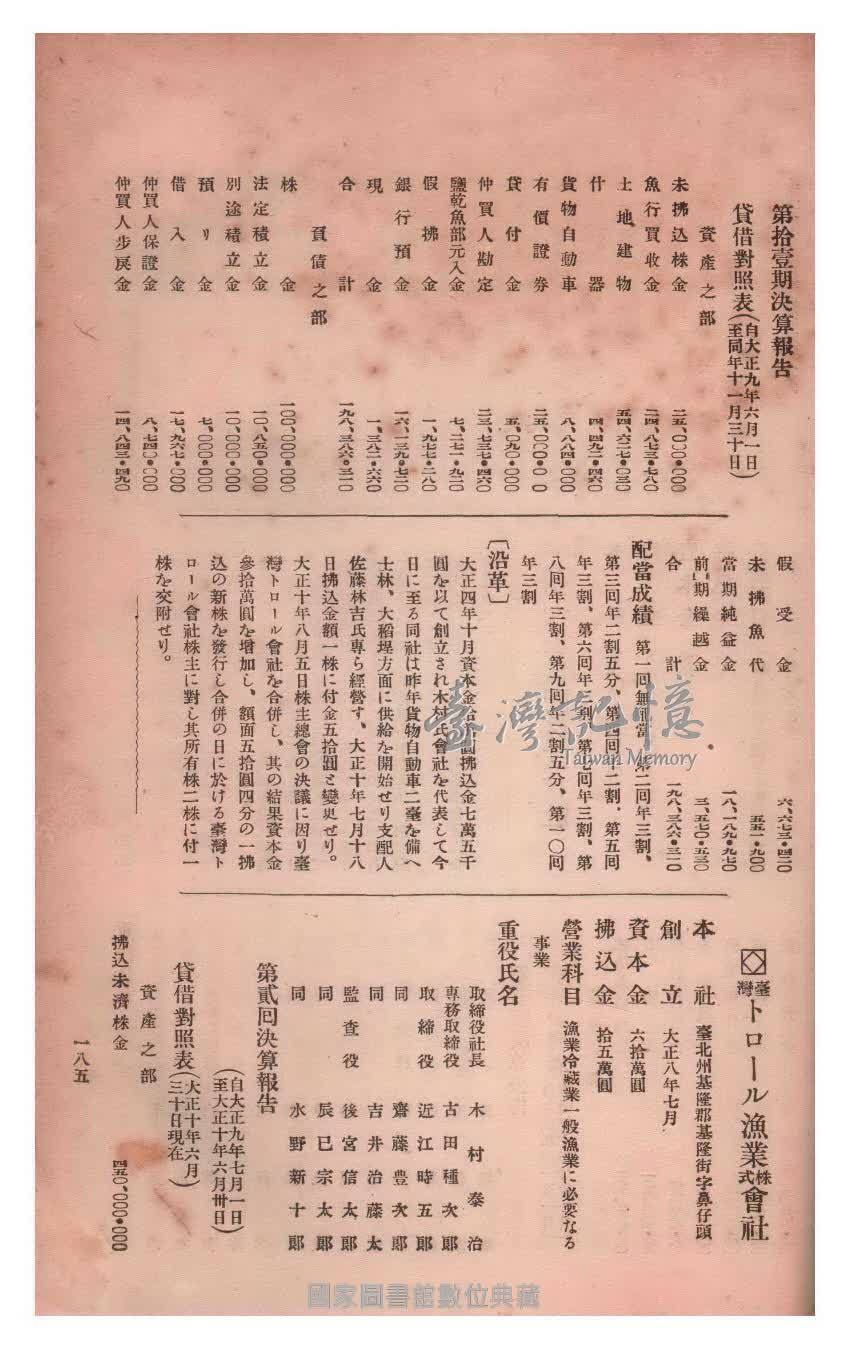 第拾壹期決算報告
貸借對照表(自大正九年六月一日至同年十一月三十日)
資產之部
未拂込株金 二五、〇〇〇・〇〇〇
魚行買收金 二四、八七三・七八〇
土地建物 五四、六二七・〇三〇
什器 四、四九二・四六〇
貨物自動車 八、八八四・〇〇〇
有價證券 二五、〇〇〇・〇〇
貸付金 五、〇九〇・〇〇〇
仲買人勘定 二三、七三七・四六〇
鹽乾魚部元入金 七、二七一・九二〇
假拂金 一、九七七・二八〇
銀行預金 一六、一三九・七二〇
現金 一、三八二・六六〇
合計 一九八、三八六・三一〇
負債之部
株金 一〇〇、〇〇〇・〇〇〇
法定積立金 一〇、八五〇・〇〇〇
別途積立金 一〇、〇〇〇・〇〇〇
預り金 七、〇〇〇・〇〇〇
借入金 一七、九六七・〇〇〇
仲買人保證金 八、七四〇・〇〇〇
仲買人步戾金 一四、八四三・四九〇
假受金 六、六七三・四二〇
未拂魚代 五五一・九〇〇
當期純益金 一八、一八九・九七〇
前期繰越金 三、五七〇・五三〇
合計 一九八、三八六・三一〇
配當成績 第一回無配當、第二回年三割、
第三回年二割五分、第四回年二割、第五回
年三割、第六回年三割、第七回年三割、第
八回年三割、第九回年二割五分、第一〇回
年三割
〔沿革〕
大正四年十月資本金拾萬圓拂込金七萬五千
圓を以て創立され木村氏會社を代表して今
日に至る同社は昨年貨物自動車二臺を備へ
士林、大稻埕方面に供給を開始せり支配人
佐藤林吉氏專ら經營す、大正十年七月十八
日拂込金額一株に付金五拾圓と變更せり。
大正十年八月五日株主總會の決議に因り臺
灣トロール會社を合併し、其の結果資本金
參拾萬圓を增加し、額面五拾圓四分の一拂
込の新株を發行し合併の日に於ける臺灣ト
ロール會社株主に對し其所有株二株に付一
株を交附せり。
臺灣トロール漁業株式會社
本社 臺北州基隆郡基隆街字鼻仔頭
創立 大正八年七月
資本金 六拾萬圓
拂込金 拾五萬圓
營業科目 漁業冷藏業一般漁業に必要なる
事業
重役氏名
取締役社長 木村泰治
專務取締役 古田種次郎
取締役 近江時五郎
同 齋藤豊次郎
同 吉井治藤太
監査役 後宮信太郎
同 辰巳宗太郎
同 水野新十郎
第貳回決算報告
(自大正九年七月一日至大正十年六月卅日)
貸借對照表(大正十年六月三十日現在)
資產之部
拂込未濟株金 四五〇、〇〇〇・〇〇〇
一八五
臺灣記憶
Taiwan Memory
國家圖書館數位典藏